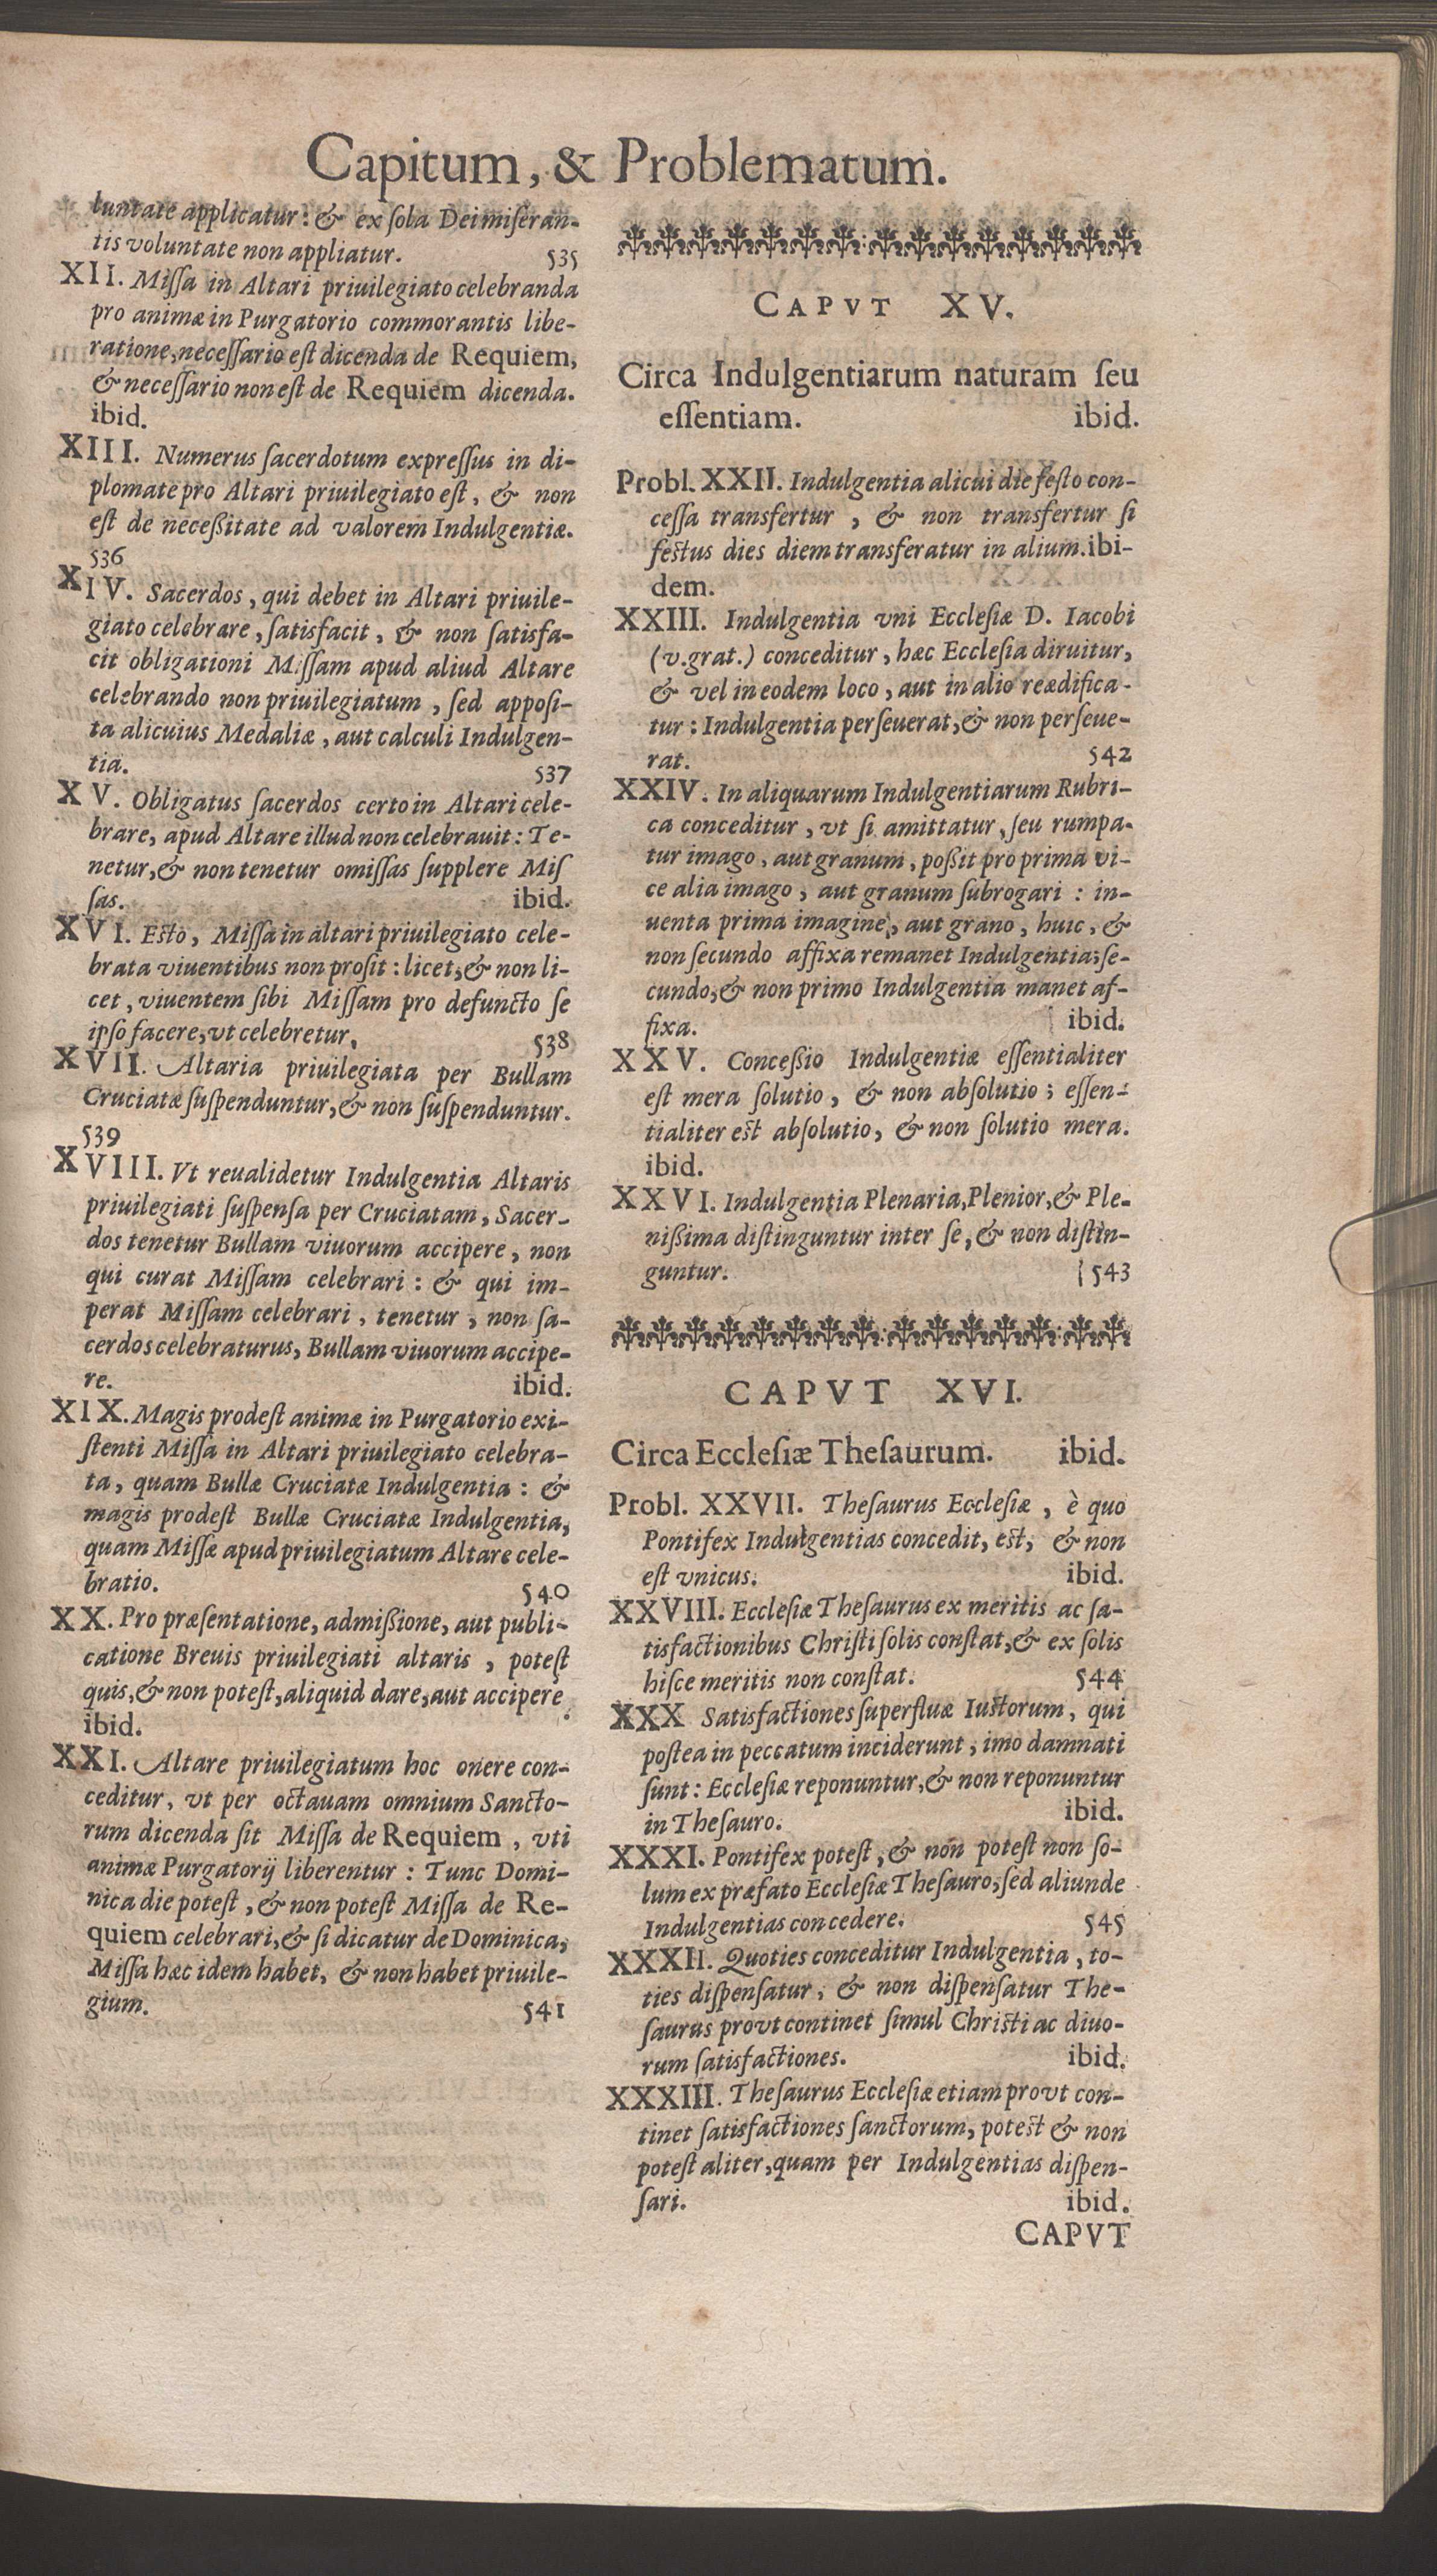 Capitum, & Problematum.
luntate applicatur: & ex ſola Dei miſeran-
tis voluntate non appliatur. 535
XII. Miſſa in Altari priuilegiato celebranda
pro animæ in Purgatorio commorantis libe-
ratione, neceſſario eſt dicenda de Requiem,
& neceſſario non eſt de Requiem dicenda.
ibid.
XIII. Numerus ſacerdotum expreſſus in di-
plomate pro Altari priuilegiato eſt, & non
eſt de neceßitate ad valorem Indulgentiæ.
536
XIV. Sacerdos, qui debet in Altari priuile-
giato celebrare, ſatisfacit, & non ſatisfa-
cit obligationi Miſſam apud aliud Altare
celebrando non priuilegiatum, ſed appoſi-
ta alicuius Medaliæ, aut calculi Indulgen-
tia. 537
XV. Obligatus ſacerdos certo in Altari cele-
brare, apud Altare illud non celebrauit: Te-
netur, & non tenetur omiſſas ſupplere Miſ
ſas. ibid.
XVI. Eſto, Miſſa in altari priuilegiato cele-
brata viuentibus non proſit: licet, & non li-
cet, viuentem ſibi Miſſam pro defuncto ſe
ipſo facere, vt celebretur. 538
XVII. Altaria priuilegiata per Bullam
Cruciatæ ſuſpenduntur, & non ſuſpenduntur.
539
XVIII. Vt reualidetur Indulgentia Altaris
priuilegiati ſuſpenſa per Cruciatam, Sacer-
dos tenetur Bullam viuorum accipere, non
qui curat Miſſam celebrari: & qui im-
perat Miſſam celebrari, tenetur, non ſa-
cerdos celebraturus, Bullam viuorum accipe-
re. ibid.
XIX. Magis prodeſt animæ in Purgatorio exi-
ſtenti Miſſa in Altari priuilegiato celebra-
ta, quam Bullæ Cruciatæ Indulgentia: &
magis prodeſt Bullæ Cruciatæ Indulgentia,
quam Miſſæ apud priuilegiatum Altare cele-
bratio. 540
XX. Pro præſentatione, admißione, aut publi-
catione Breuis priuilegiati altaris, poteſt
quis, & non poteſt, aliquid dare, aut accipere.
ibid.
XXI. Altare priuilegiatum hoc onere con-
ceditur, vt per octauam omnium Sancto-
rum dicenda ſit Miſſa de Requiem, vti
animæ Purgatorij liberentur: Tunc Domi-
nica die poteſt, & non poteſt Miſſa de Re-
quiem celebrari, & ſi dicatur de Dominica,
Miſſa hæc idem habet, & non habet priuile-
gium. 541
CAPVT XV.
Circa Indulgentiarum naturam ſeu
eſſentiam. ibid.
Probl. XXII. Indulgentia alicui die feſto con-
ceſſa transfertur, & non transfertur ſi
feſtus dies diem transferatur in alium. ibi-
dem.
XXIII. Indulgentia vni Eccleſiæ D. Iacobi
(v. grat.) conceditur, hæc Eccleſia diruitur,
& vel in eodem loco, aut in alio reædifica-
tur: Indulgentia perſeuerat, & non perſeue-
rat. 542
XXIV. In aliquarum Indulgentiarum Rubri-
ca conceditur, vt ſi amittatur, ſeu rumpa-
tur imago, aut granum, poßit pro prima vi-
ce alia imago, aut granum ſubrogari: in-
uenta prima imagine, aut grano, huic, &
non ſecundo affixa remanet Indulgentia; ſe-
cundo, & non primo Indulgentia manet af-
fixa. ibid.
XXV. Conceßio Indulgentiæ eſſentialiter
eſt mera ſolutio, & non abſolutio; eſſen-
tialiter eſt abſolutio, & non ſolutio mera.
ibid.
XXVI. Indulgentia Plenaria, Plenior, & Ple-
nißima diſtinguntur inter ſe, & non diſtin-
guntur. 543
CAPVT XVI.
Circa Eccleſiæ Theſaurum. ibid.
Probl. XXVII. Theſaurus Eccleſiæ, è quo
Pontifex Indulgentias concedit, eſt, & non
eſt vnicus. ibid.
XXVIII. Eccleſiæ Theſaurus ex meritis ac ſa-
tisfactionibus Chriſti ſolis conſtat, & ex ſolis
hiſce meritis non conſtat. 544
XXX Satisfactiones ſuperfluæ Iuſtorum, qui
poſtea in peccatum inciderunt, imo damnati
ſunt: Eccleſiæ reponuntur, & non reponuntur
in Theſauro. ibid.
XXXI. Pontifex poteſt, & non poteſt non ſo-
lum ex præfato Eccleſiæ Theſauro, ſed aliunde
Indulgentias concedere. 545
XXXII. Quoties conceditur Indulgentia, to-
ties diſpenſatur, & non diſpenſatur The-
ſaurus provt continet ſimul Chriſti ac diuo-
rum ſatisfactiones. ibid.
XXXIII. Theſaurus Eccleſiæ etiam provt con-
tinet ſatisfactiones ſanctorum, poteſt & non
poteſt aliter, quam per Indulgentias diſpen-
ſari. ibid.
CAPVT